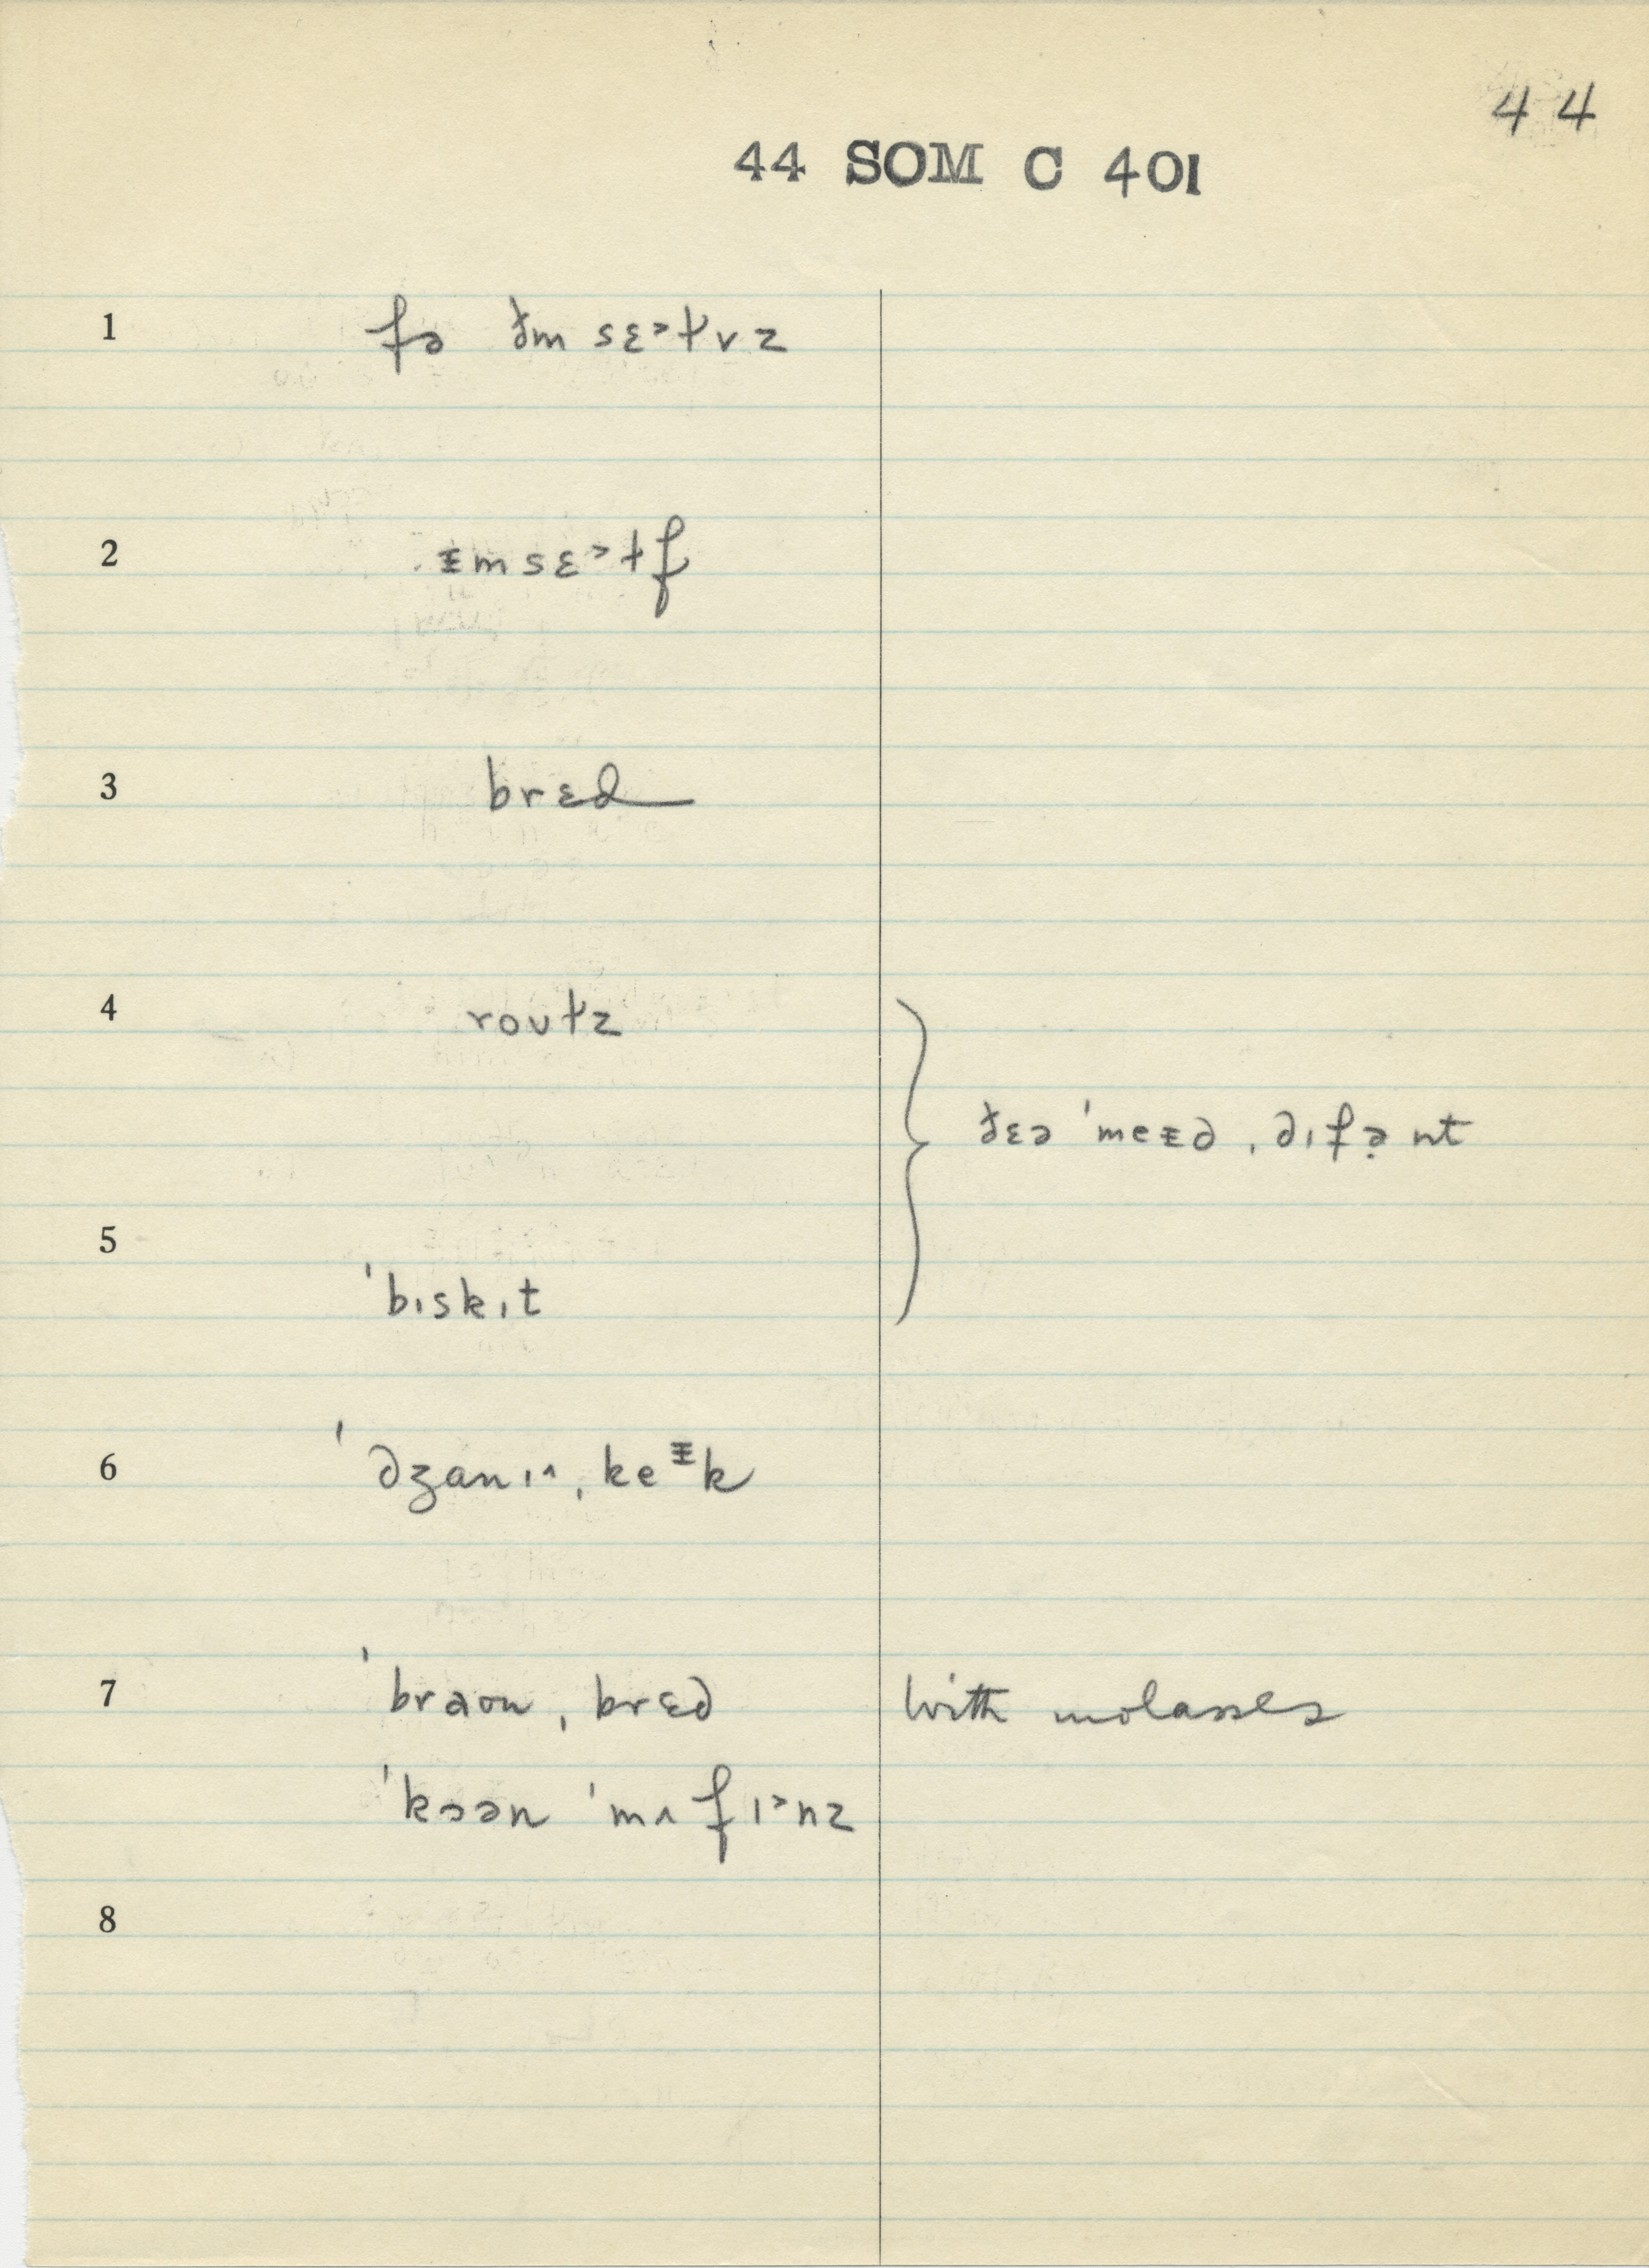 44
44 SOM C 401
1 fə ðm sɛ˃ɫvz
2 ɪmsɛ˃ɫf
3 brɛd
4 roʊɫz
ðɛə ˈmeɪd ˌdɪfə̣nt
5
ˈbɪskɪt
6 ˈdʒanɪ˄ˌkeᶦk
7 ˈbraʊnˌbrɛd with molasses
ˈkɔən ˈmʌfɪ˃nz
8